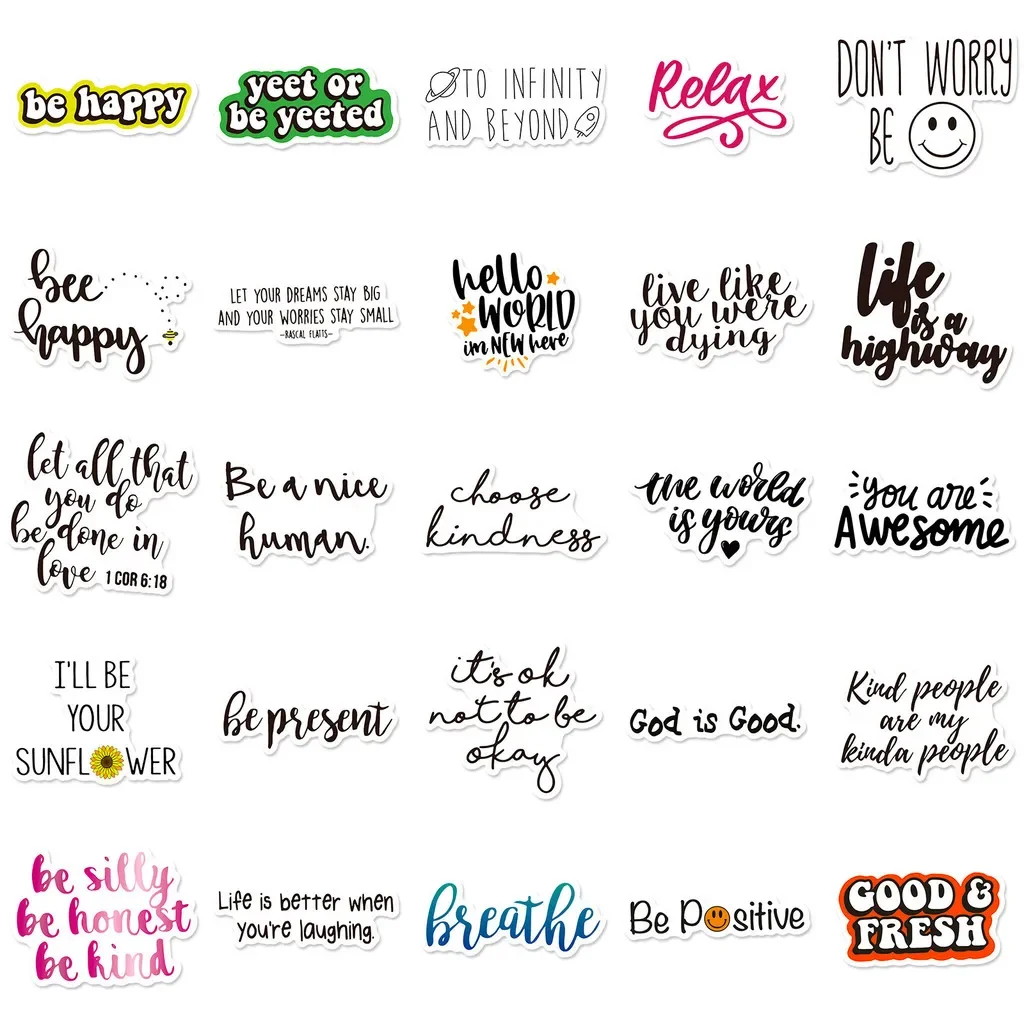 be happy
yeet or
be yeeted
TO INFINITY
AND BEYOND
Relax
DON'T WORRY
BE
bee
happy
LET YOUR DREAMS STAY BIG
AND YOUR WORRIES STAY SMALL
-RASCAL FLATTS-
hello
WORLD
im NEW here
live like
you were
dying
life
is a
highway
let all that
you do
be done in
love 1 COR 6:18
Be a nice
human.
choose
kindness
the world
is yours
you are
Awesome
I'LL BE
YOUR
SUNFLWER
be present
it's ok
not to be
okay
God is Good.
Kind people
are my
kinda people
be silly
be honest
be kind
Life is better when
you're laughing.
breathe
Be Psitive
GOOD &
FRESH